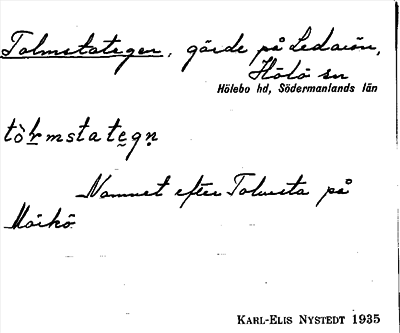 Tolmstategen, gärde på Ledarön,
Hölö sn
Hölebo hd, Södermanlands län
tò̀ɽmstategn̥
Namnet efter Tolmsta på
Mörkö
KARL-ELIS NYSTEDT 1935